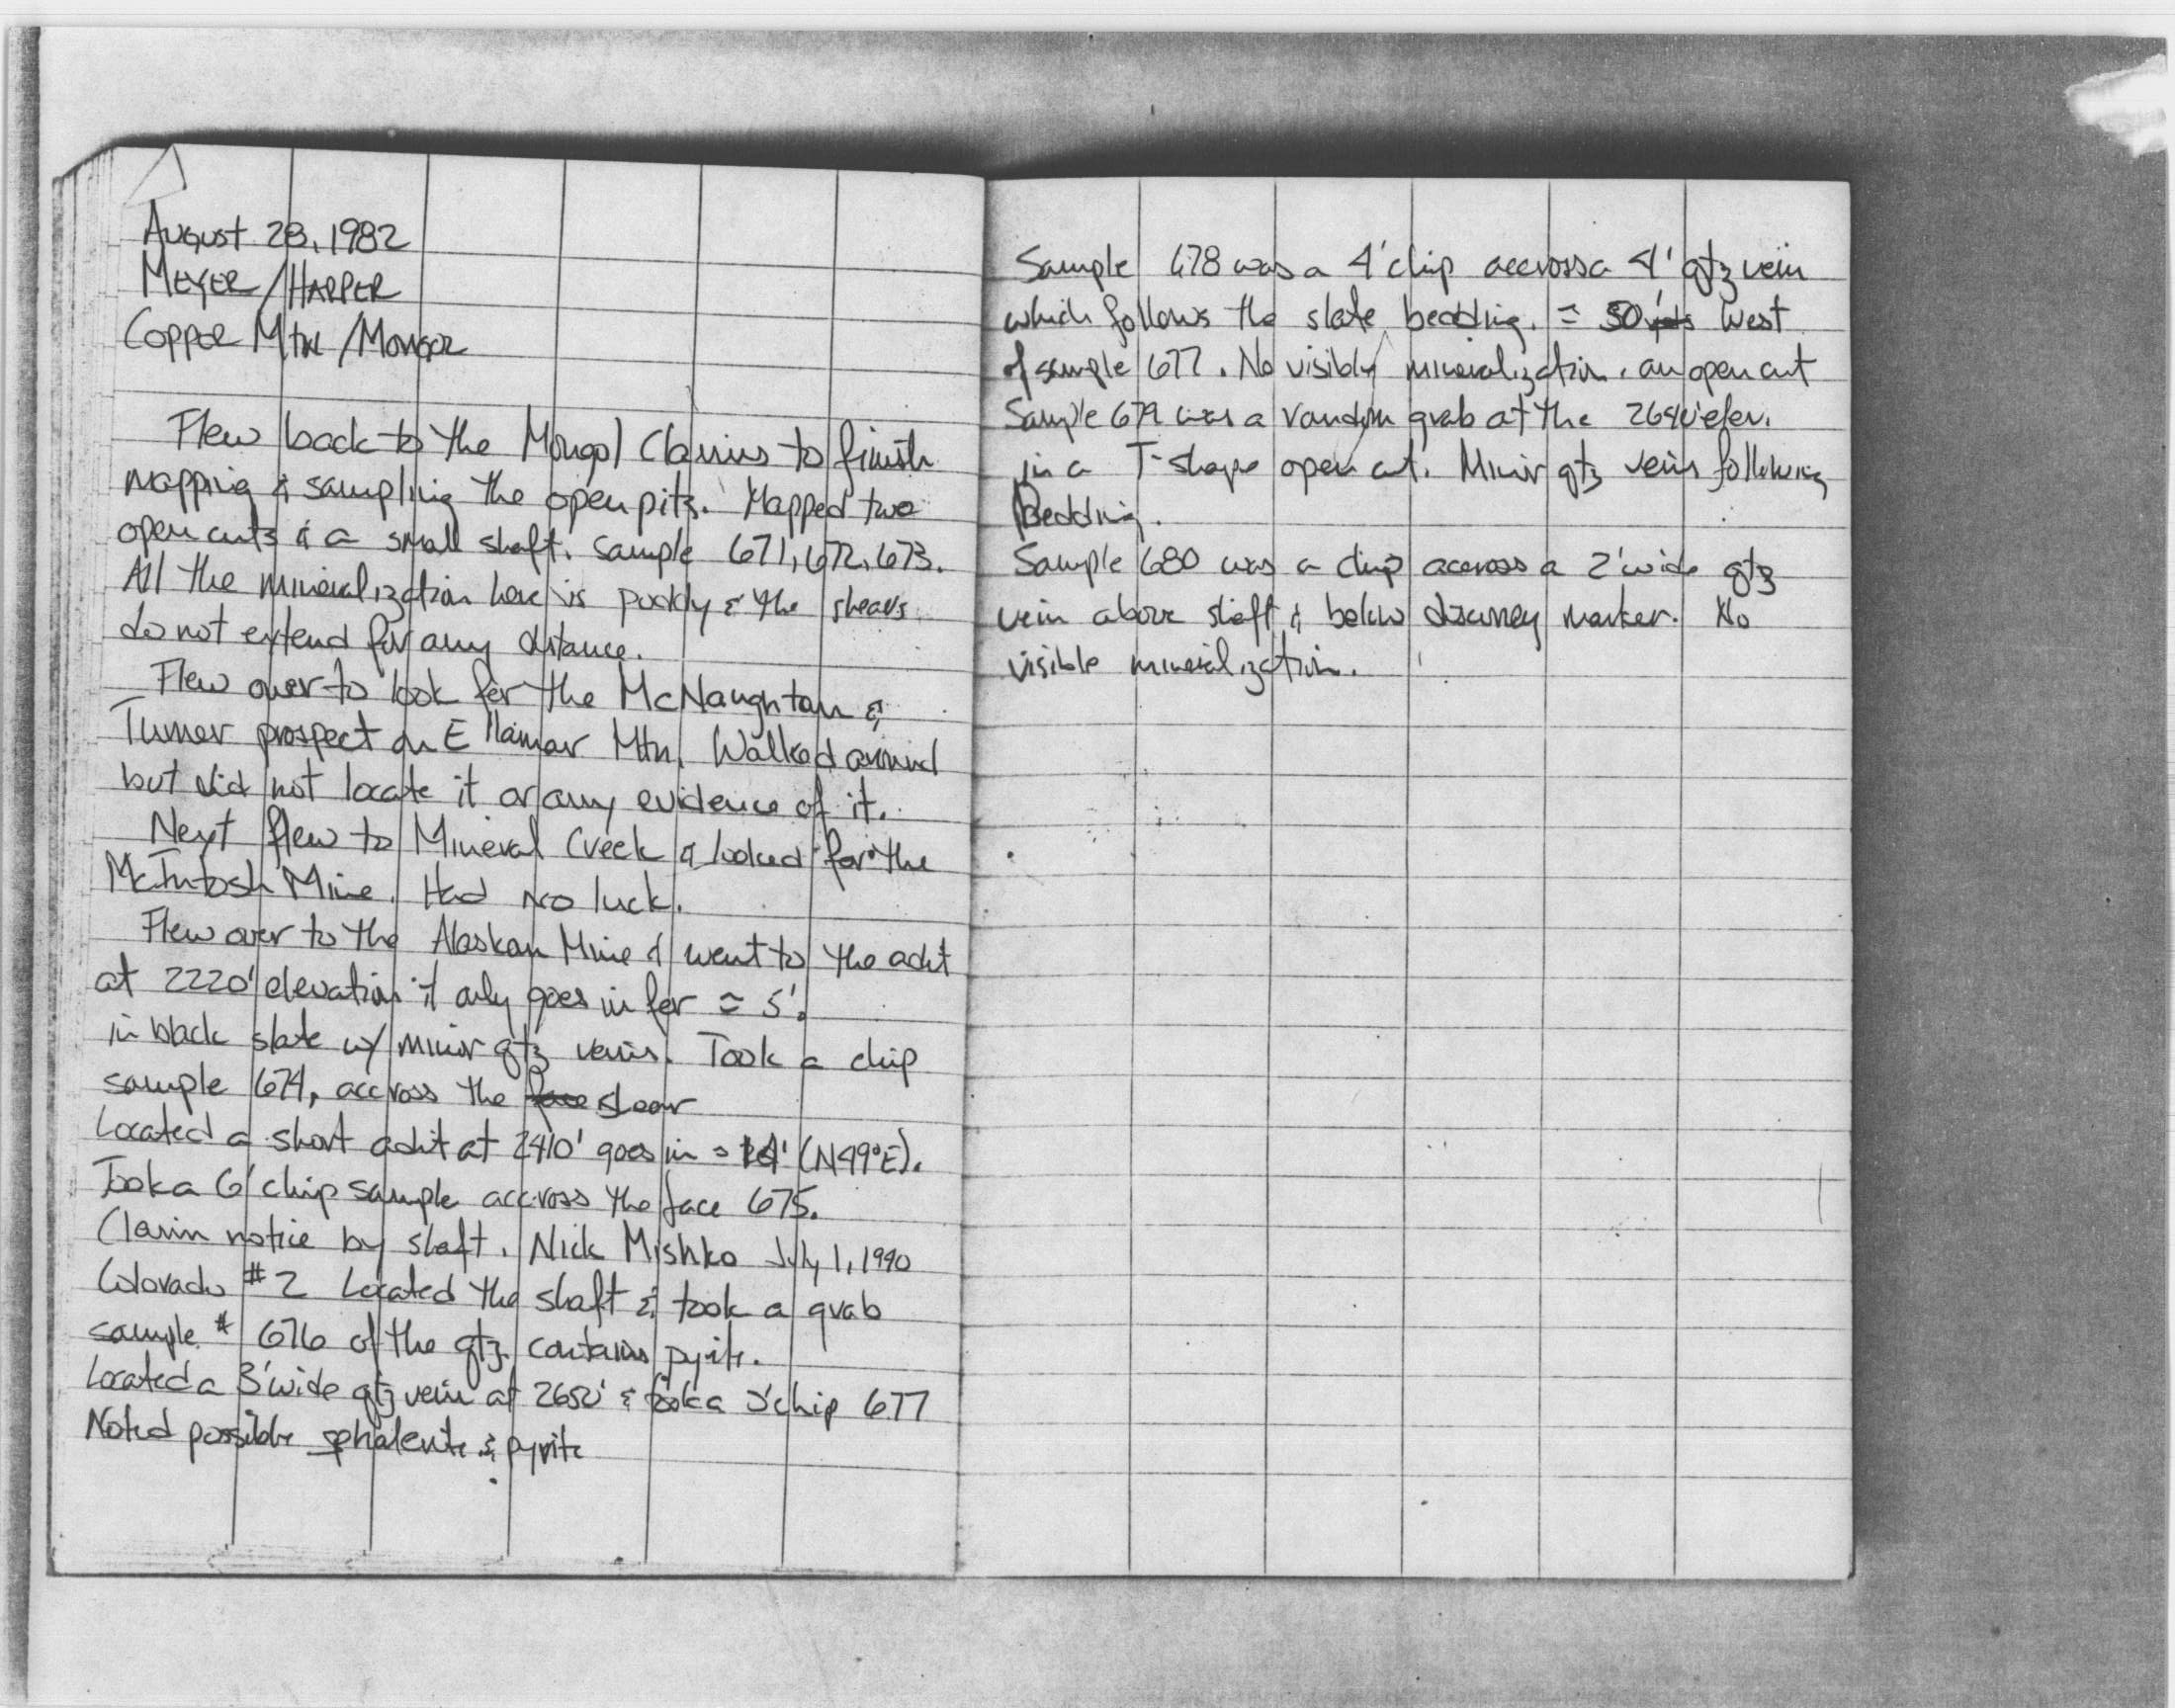 August 28, 1982
MEYER/HARPER
Copper Mtn/Mongol
Flew back to the Mongol Claims to finish
mapping & sampling the open pits. Mapped two
open cuts & a small shaft. Sample 671, 672, 673.
All the mineralization here is poddy & the shears
do not extend for any distance.
Flew over to look for the McNaughton &
Turner prospect on Ellamar Mtn. Walked around
but did not locate it or any evidence of it.
Next flew to Mineral Creek & looked for the
McIntosh Mine. Had no luck.
Flew over to the Alaskan Mine & went to the adit
at 2220' elevation it only goes in for ≈ 5'.
in black slate w/ minor qtz veins. Took a chip
sample 674, accross the face shear
Located a short adit at 2410' goes in ≈ (N49°E).
Took a 6' chip sample accross the face 675.
Claim notice by shaft. Nick Mishko July 1, 1940
Colorado #2 Located the shaft & took a grab
sample # 676 of the qtz contains pyrite.
Located a 3' wide qtz vein at 2650' & took a 3' chip 677
Noted possible sphalerite & pyrite
Sample 678 was a 4' chip accross a 4' qtz vein
which follows the slate bedding. ≈ 50' yds West
of sample 677. No visibly mineralization. an open cut
Sample 679 was a random grab at the 2640' elev.
in a T-shape open cut. Minor qtz veins following
Bedding.
Sample 680 was a chip accross a 2' wide qtz
vein above shaft & below discovery marker. No
visible mineralization.